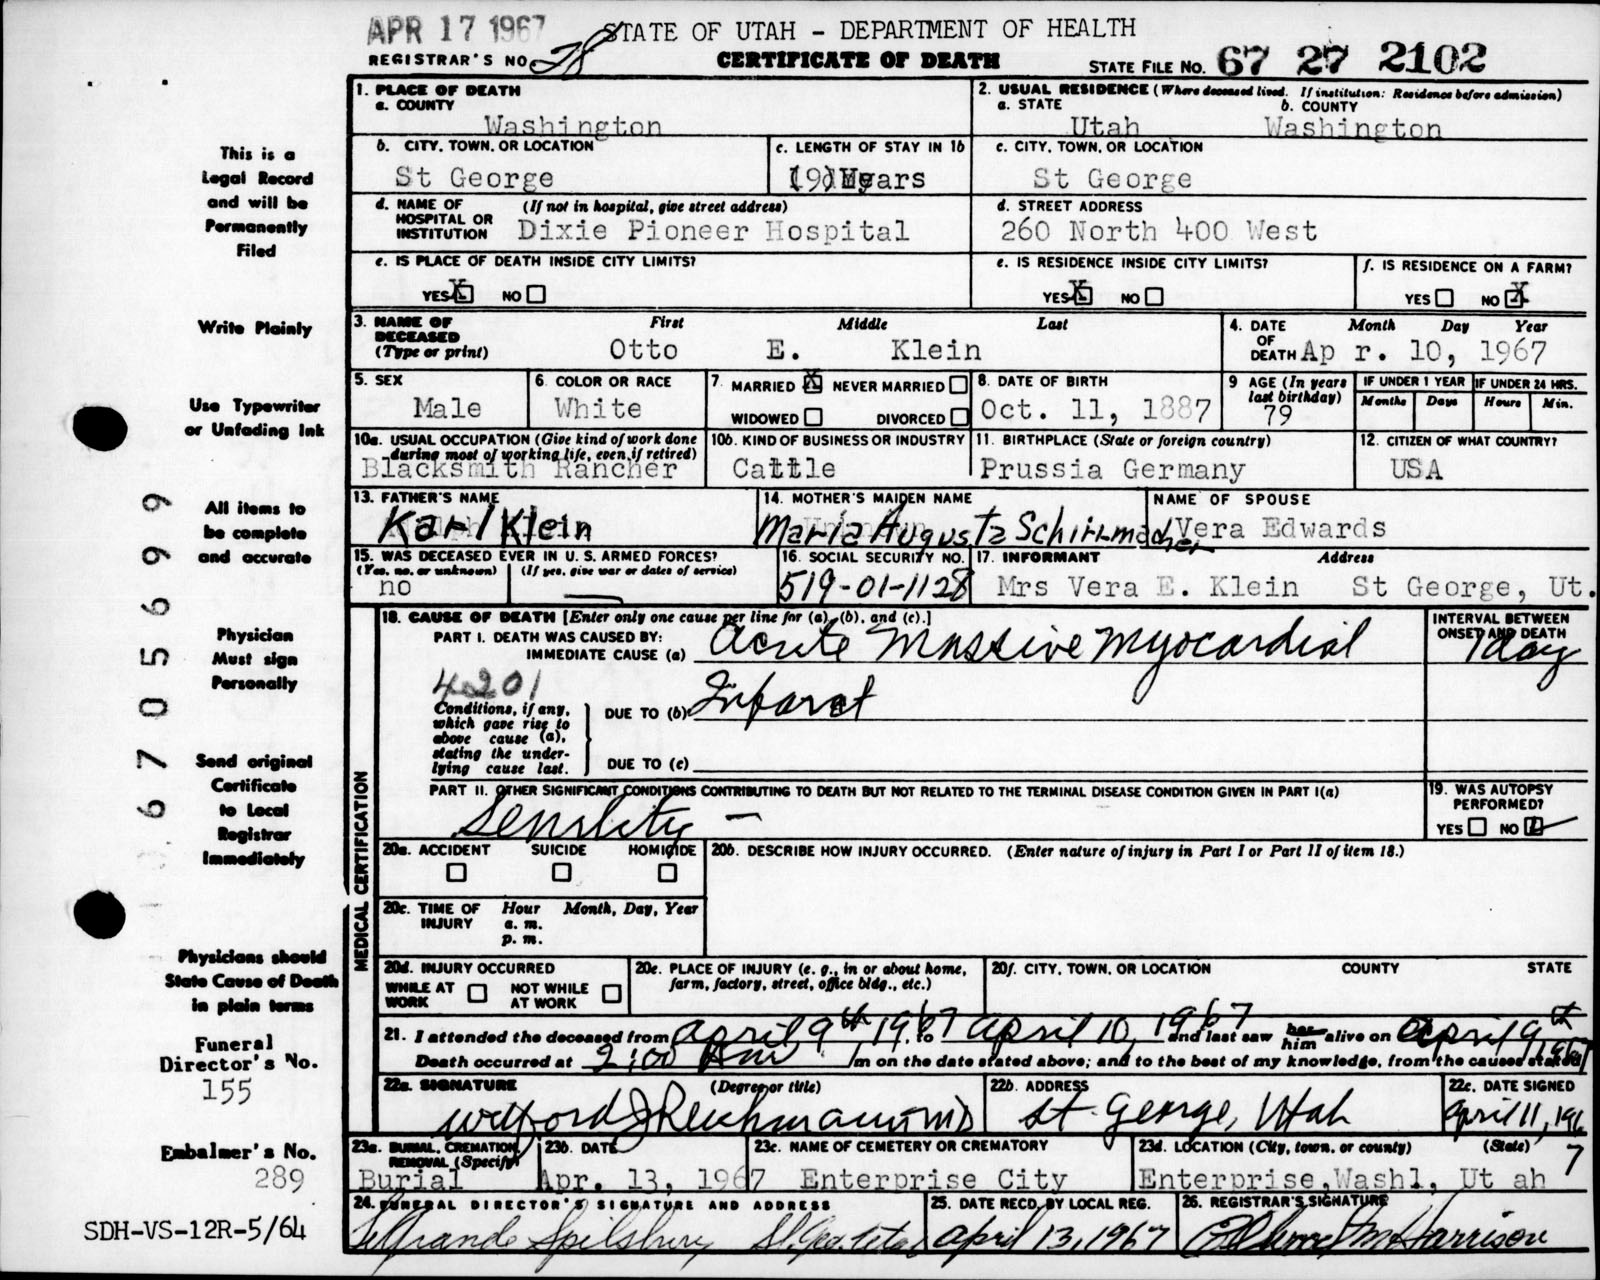 APR 17 1967
STATE OF UTAH - DEPARTMENT OF HEALTH
REGISTRAR'S NO. 28
CERTIFICATE OF DEATH
STATE FILE NO. 67 27 2102
This is a
Legal Record
and will be
Permanently
Filed
Write Plainly
Use Typewriter
or Unfading Ink
All items to
be complete
and accurate
Physician
Must sign
Personally
Send original
Certificate
to Local
Registrar
Immediately
Physicians should
State Cause of Death
in plain terms
Funeral
Director's No.
155
Embalmer's No.
289
SDH-VS-12R-5/64
67 05699
1. PLACE OF DEATH
a. COUNTY
Washington
2. USUAL RESIDENCE (Where deceased lived. If institution: Residence before admission)
a. STATE b. COUNTY
Utah Washington
b. CITY, TOWN, OR LOCATION
St George
c. LENGTH OF STAY IN 1b
19 Years
c. CITY, TOWN, OR LOCATION
St George
d. NAME OF HOSPITAL OR INSTITUTION (If not in hospital, give street address)
Dixie Pioneer Hospital
d. STREET ADDRESS
260 North 400 West
e. IS PLACE OF DEATH INSIDE CITY LIMITS?
YES X NO
e. IS RESIDENCE INSIDE CITY LIMITS?
YES X NO
f. IS RESIDENCE ON A FARM?
YES NO X
3. NAME OF DECEASED (Type or print)
First Middle Last
Otto E. Klein
4. DATE OF DEATH Month Day Year
Ap r. 10, 1967
5. SEX
Male
6. COLOR OR RACE
White
7. MARRIED X NEVER MARRIED
WIDOWED DIVORCED
8. DATE OF BIRTH
Oct. 11, 1887
9 AGE (In years last birthday)
79
IF UNDER 1 YEAR
Months Days
IF UNDER 24 HRS.
Hours Min.
10a. USUAL OCCUPATION (Give kind of work done during most of working life, even if retired)
Blacksmith Rancher
10b. KIND OF BUSINESS OR INDUSTRY
Cattle
11. BIRTHPLACE (State or foreign country)
Prussia Germany
12. CITIZEN OF WHAT COUNTRY?
USA
13. FATHER'S NAME
Karl Klein
14. MOTHER'S MAIDEN NAME
Maria Augusta Schirrmacher
NAME OF SPOUSE
Vera Edwards
15. WAS DECEASED EVER IN U. S. ARMED FORCES?
(Yes, no, or unknown) (If yes, give war or dates of service)
no
16. SOCIAL SECURITY NO.
519-01-1128
17. INFORMANT Address
Mrs Vera E. Klein St George, Ut.
MEDICAL CERTIFICATION
18. CAUSE OF DEATH [Enter only one cause per line for (a), (b), and (c).]
PART I. DEATH WAS CAUSED BY:
IMMEDIATE CAUSE (a) Acute Massive Myocardial
INTERVAL BETWEEN ONSET AND DEATH
1 day
4201
Conditions, if any, which gave rise to above cause (a), stating the underlying cause last.
DUE TO (b) Infarct
DUE TO (c)
PART II. OTHER SIGNIFICANT CONDITIONS CONTRIBUTING TO DEATH BUT NOT RELATED TO THE TERMINAL DISEASE CONDITION GIVEN IN PART I(a)
Senility -
19. WAS AUTOPSY PERFORMED?
YES NO
20a. ACCIDENT SUICIDE HOMICIDE
20b. DESCRIBE HOW INJURY OCCURRED. (Enter nature of injury in Part I or Part II of item 18.)
20c. TIME OF INJURY Hour Month, Day, Year
a. m.
p. m.
20d. INJURY OCCURRED
WHILE AT WORK NOT WHILE AT WORK
20e. PLACE OF INJURY (e. g., in or about home, farm, factory, street, office bldg., etc.)
20f. CITY, TOWN, OR LOCATION COUNTY STATE
21. I attended the deceased from April 9th 1967 to April 10, 1967 and last saw her him alive on April 9th 1967
Death occurred at 2:00 Am m on the date stated above; and to the best of my knowledge, from the causes stated
22a. SIGNATURE (Degree or title)
Wilford J Reichmann MD
22b. ADDRESS
St. George, Utah
22c. DATE SIGNED
April 11, 1967
23a. BURIAL, CREMATION, REMOVAL (Specify)
Burial
23b. DATE
Apr. 13, 1967
23c. NAME OF CEMETERY OR CREMATORY
Enterprise City
23d. LOCATION (City, town, or county) (State)
Enterprise, Wash1, Ut ah
24. FUNERAL DIRECTOR'S SIGNATURE AND ADDRESS
LeGrande Spilsbury St. Geo. Utah
25. DATE RECD. BY LOCAL REG.
April 13, 1967
26. REGISTRAR'S SIGNATURE
Harrison